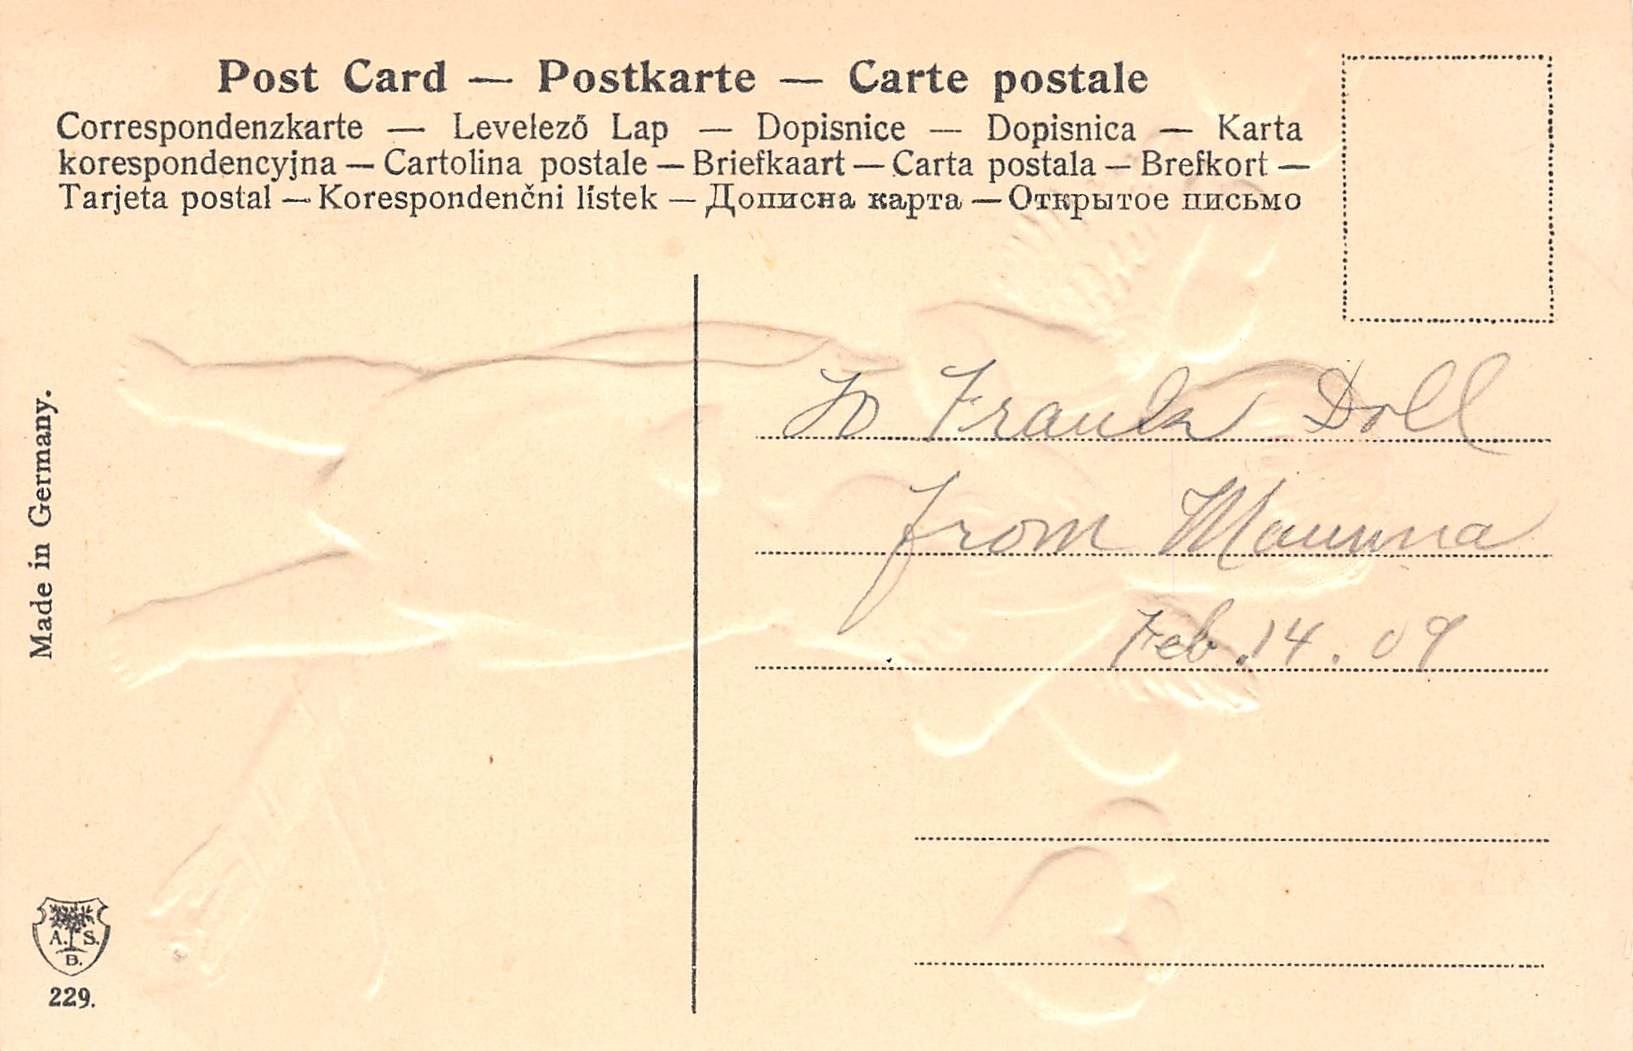 Post Card — Postkarte — Carte postale
Correspondenzkarte — Levelező Lap — Dopisnice — Dopisnica — Karta
korespondencyjna — Cartolina postale — Briefkaart — Carta postala — Brefkort —
Tarjeta postal — Korespondenčni lístek — Дописна карта — Открытое письмо
To Frank Doll
from Mamma
Feb. 14. 09
Made in Germany.
A. S.
B.
229.